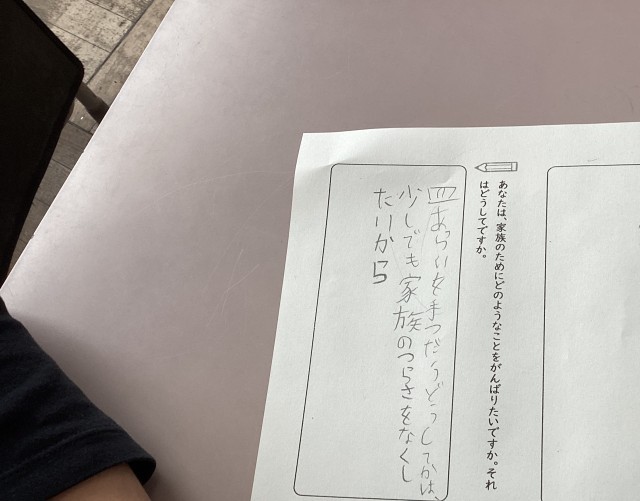 あなたは、家族のためにどのようなことをがんばりたいですか。それ
はどうしてですか。
皿あらいを手つだうどうしてかは、
少しでも家族のつらさをなくし
たいから